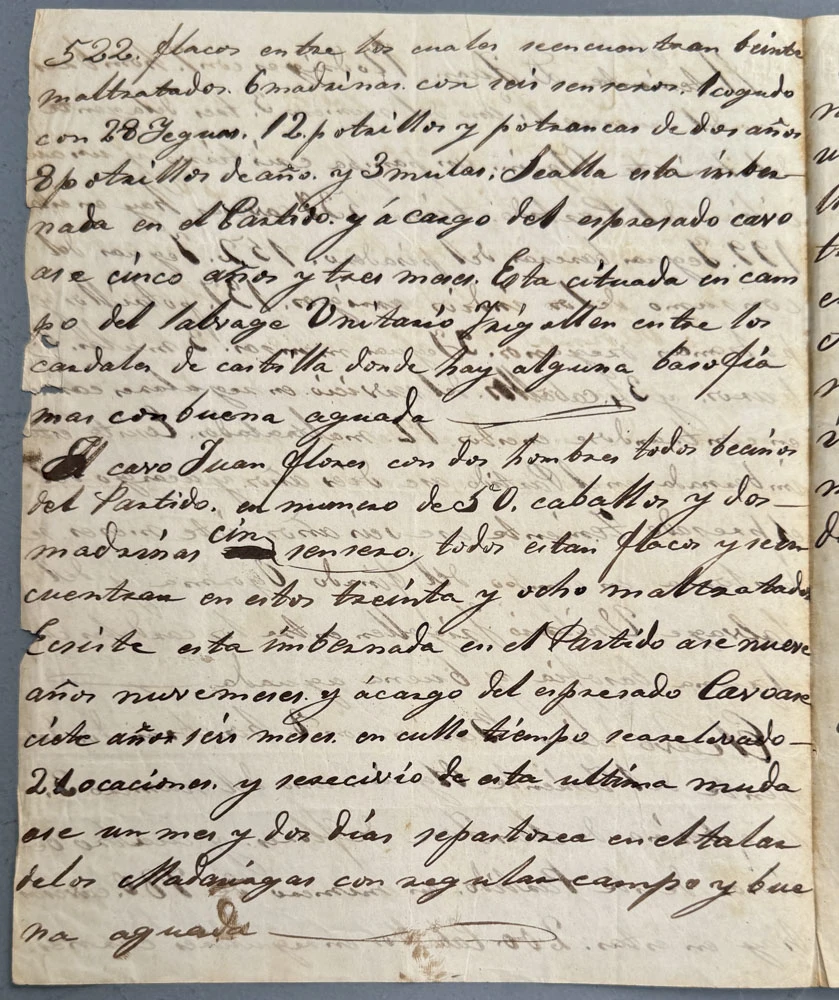 522. flacos entre los cuales seencuentran beinte
maltratados. 6 madrinas. con seis senseros. 1 cogudo
con 28 Yeguas. 12. potrillos y potrancas de dos años
8 potrillos de año. y 3 mulas. Sealla esta inber-
nada en el Partido. y á cargo del espresado cavo
ase cinco años y tres meses. Esta cituada en cam
po del salvage Unitario Frigollen entre los
cardales de castilla donde hay alguna basofia
mas con buena aguada
El cavo Juan flores con dos hombres todos becinos
del Partido. en numero de 50. caballos y dos-
madrinas cin sensero. todos estan flacos y seen
cuentran en estos treinta y ocho maltratados
Ecsiste esta imbernada en el Partido ase nueve
años nuevemeses. y ácargo del espresado Cavo ase
ciete años seis meses. en cullo tiempo searelevado-
2 Locaciones. y serecivio de esta ultima muda
ase un mes y dos días sepastorea en el talar
delos Madariagas con regular campo y bue
na aguada